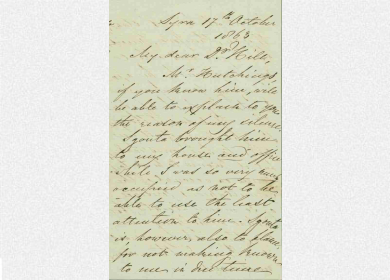 Syra 17th October
1863
My dear Dr Hill,
Mr Hutchings,
if you know him, will
be able to explain to you
the reason of my silence
brought him
to my house and office
while I was so very much
occupied as not to be
able to use the least
attention to him.
is, however, also to blame
for not making known
to me in due time